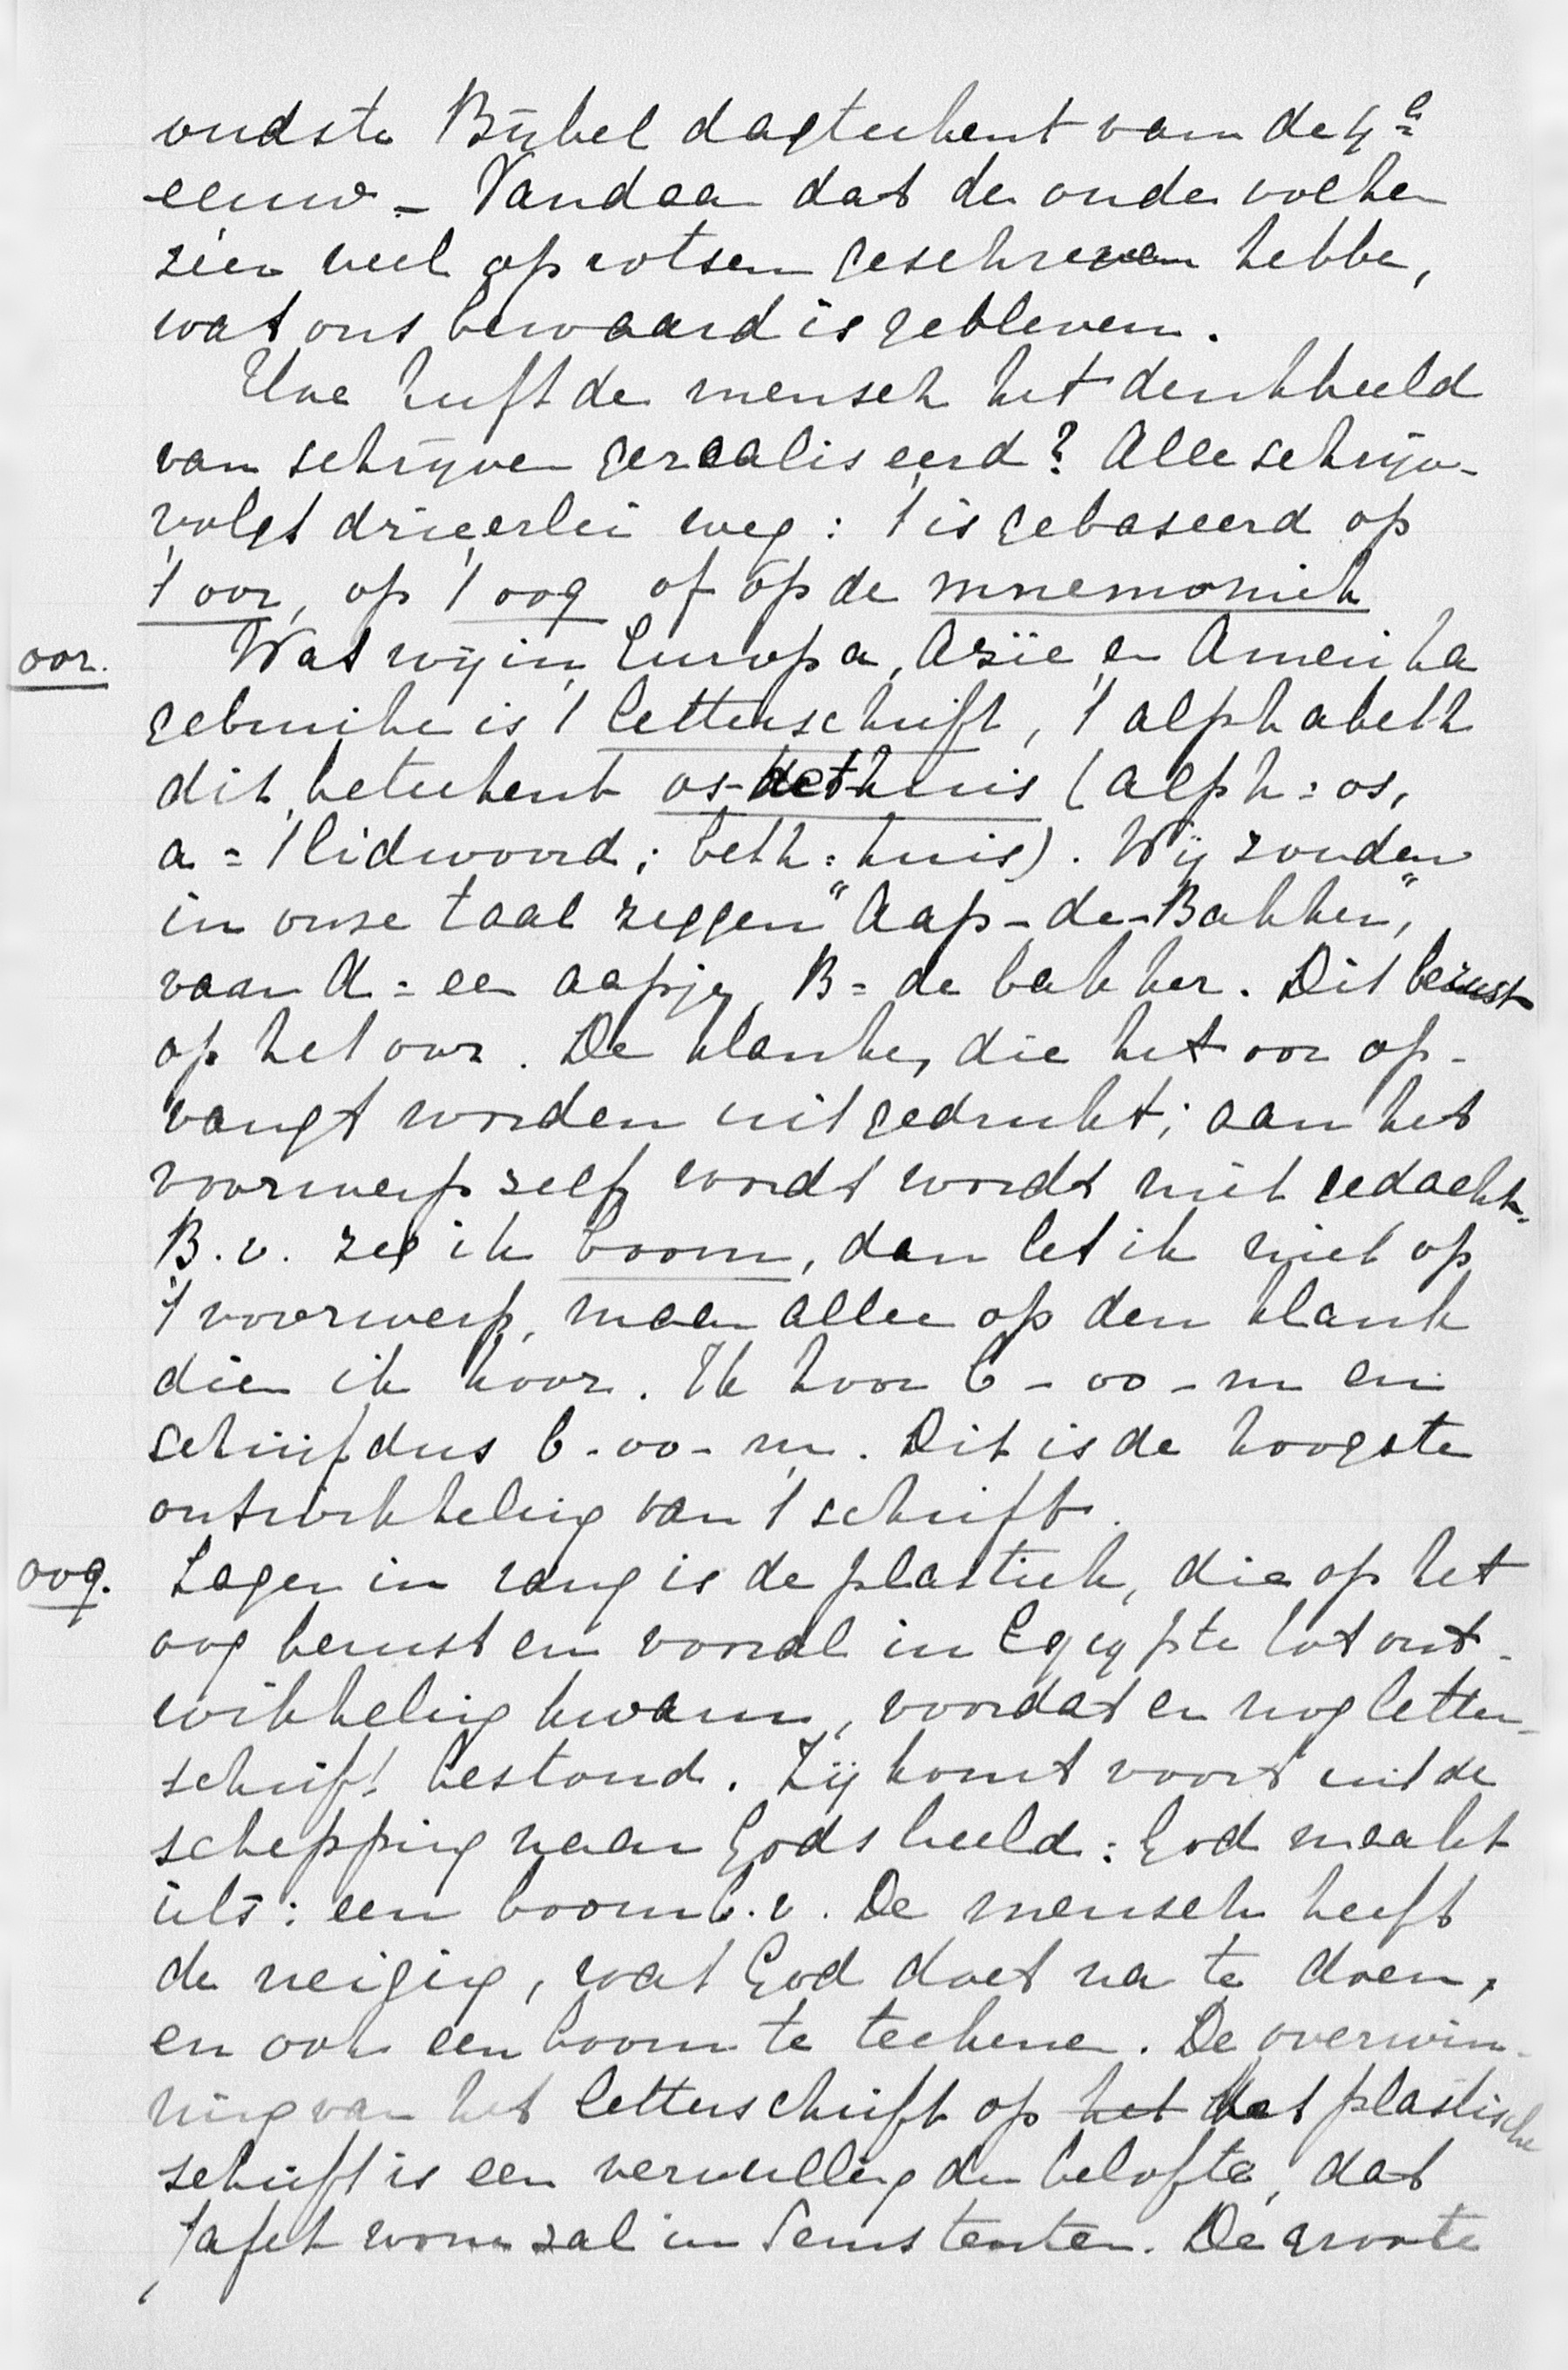 oudste Bijbel dagteekent van de 4e
eeuw – Vandaar dat de oude volken
zéér veel op rotsen geschreven hebbe,
wat ons bewaard is gebleven.
Hoe heeft de mensch het denkbeeld
van schrijven gerealiseerd? Alle schrijv-
volgt drieërlei weg: 't is gebaseerd op
't oor, op 't oog of op de mnemoniek
oor.
Wat wij in Europa, Azië en Amerika
gebruike is 't letterschrift, 't alphabeth
dit beteekent os-het-huis (alph = os,
a = 't lidwoord; beth = huis). Wij zouden
in onze taal zeggen "Aap-de-Bakker",
vaan A = een aapje, B = de bakker. Dit berust
op het oor. De klanke, die het oor op-
vangt worden uitgedrukt; aan het
voorwerp zelf wordt wordt niet gedacht.
B.v. zeg ik boom, dan let ik niet op
't voorwerp, maar alleen op den klank
dien ik hoor. Ik hoor b - oo - m en
schrijf dus b-oo-m. Dit is de hoogste
ontwikkeling van 't schrift.
oog.
Lager in rang is de plastiek, die op het
oog berust en vooral in Egypte tot ont-
wikkeling kwam, voordat er nog letter-
schrift bestond. Zij komt voort uit de
schepping naar Gods beeld: God maakt
iets: een boom b.v. De mensch heeft
de neiging, wat God doet na te doen,
en ook een boom te teekene. De overwin-
ning van het letterschrift op het het plastische
schrift is een vervulling der belofte, dat
Jafet wone zal in Sems tenten. De groote